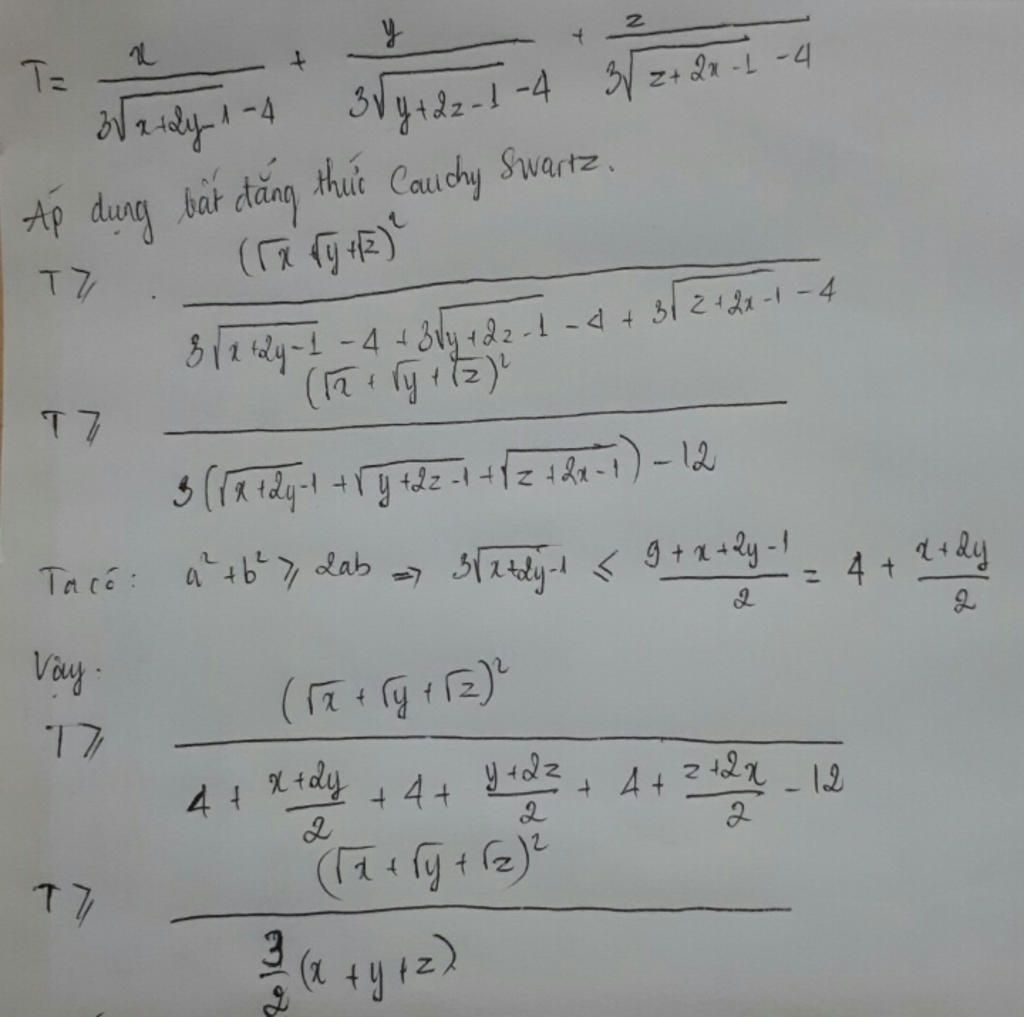 T = x / (3√(x+2y-1) - 4) + y / (3√(y+2z-1) - 4) + z / (3√(z+2x-1) - 4)
Áp dụng bất đẳng thức Cauchy Swartz.
T ⩾ (√x √y + √z)² / (3√(x+2y-1) - 4 + 3√(y+2z-1) - 4 + 3√(z+2x-1) - 4)
T ⩾ (√x + √y + √z)² / (3(√(x+2y-1) + √(y+2z-1) + √(z+2x-1)) - 12)
Ta có: a² + b² ⩾ 2ab => 3√(x+2y-1) ⩽ (9+x+2y-1)/2 = 4 + (x+2y)/2
Vậy.
T ⩾ (√x + √y + √z)² / (4 + (x+2y)/2 + 4 + (y+2z)/2 + 4 + (z+2x)/2 - 12)
T ⩾ (√x + √y + √z)² / (3/2 (x + y + z))